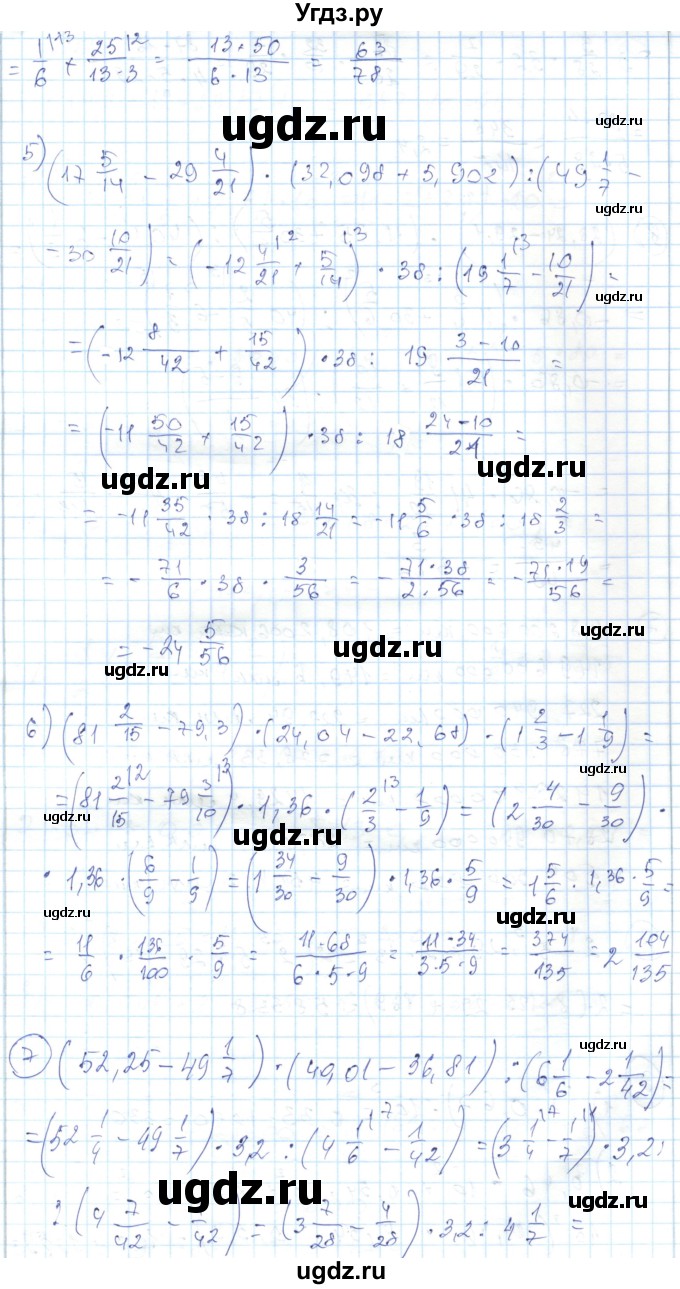 Угдз.ру
= 1/6 |13 + 25/(13·3) |2 = (13 + 50)/(6·13) = 63/78
ugdz.ru
ugdz.ru
ugdz.ru
5) (17 5/14 - 29 4/21) · (32,098 + 5,902) : (49 1/7 -
ugdz.ru
- 30 10/21) = (-12 4/21 |2 + 5/14 |3) · 38 : (19 1/7 |3 - 10/21) =
ugdz.ru
ugdz.ru
= (-12 8/42 + 15/42) · 38 : 19 (3 - 10)/21 =
= (-11 50/42 + 15/42) · 38 : 18 (24 - 10)/21 =
ugdz.ru
ugdz.ru
= -11 35/42 · 38 : 18 14/21 = -11 5/6 · 38 : 18 2/3 =
= - 71/6 · 38 · 3/56 = - (71·38)/(2·56) = - (71·19)/56 =
= -24 5/56
ugdz.ru
ugdz.ru
ugdz.ru
6) (81 2/15 - 79,3) · (24,04 - 22,68) · (1 2/3 - 1 1/9) =
= (81 2/15 |2 - 79 3/10 |3) · 1,36 · (2/3 |3 - 1/9) = (2 4/30 - 9/30) ·
ugdz.ru
ugdz.ru
· 1,36 · (6/9 - 1/9) = (1 34/30 - 9/30) · 1,36 · 5/9 = 1 5/6 · 1,36 · 5/9 =
ugdz.ru
ugdz.ru
= 11/6 · 136/100 · 5/9 = (11·68)/(6·5·9) = (11·34)/(3·5·9) = 374/135 = 2 104/135
ugdz.ru
7 (52,25 - 49 1/7) · (40,01 - 36,81) : (6 1/6 - 2 1/42) =
ugdz.ru
= (52 1/4 - 49 1/7) · 3,2 : (4 1/6 |7 - 1/42) = (3 1/4 |7 - 1/7 |4) · 3,2 :
ugdz.ru
ugdz.ru
: (4 7/42 - /42) = (3 7/28 - 4/28) · 3,2 : 4 1/7 =
ugdz.ru
ugdz.ru